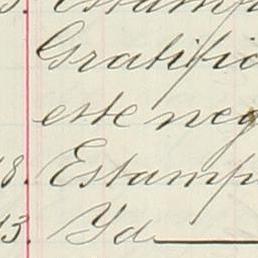 Estamp
Gratific
este neg
18. Estamp
13. Yd